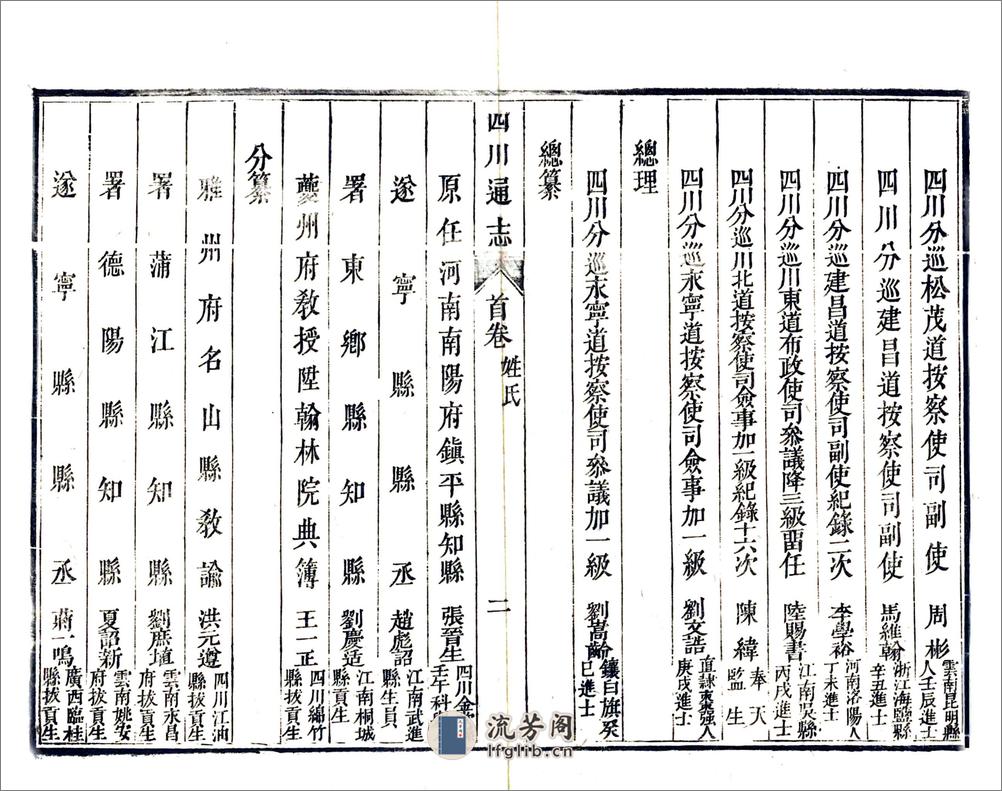 四川分巡松茂道按察使司副使 周彬 雲南昆明縣人壬辰進士
四川分巡建昌道按察使司副使 馬維翰 浙江海鹽縣辛丑進士
四川分巡建昌道按察使司副使紀錄二次 李學裕 河南洛陽人丁未進士
四川分巡川東道布政使司叅議降三級畱任 陸賜書 江南吳縣丙戌進士
四川分巡川北道按察使司僉事加一級紀錄十六次 陳緯 奉天監生
四川分巡永寧道按察使司僉事加一級 劉文誥 直隸東强人庚戌進士
總理
四川分巡永寧道按察使司叅議加一級 劉嵩齡 鑲白旗癸巳進士
總纂
四川通志 首卷 姓氏 二
原任河南南陽府鎮平縣知縣 張晉生 四川金壬午科
遂寧縣縣丞 趙彪詔 江南武進縣生員
署東鄉縣知縣 劉慶遠 江南桐城縣拔貢生
夔州府教授陞翰林院典簿 王一正 四川綿竹縣拔貢生
分纂
雅州府名山縣教諭 洪元遵 四川江油縣拔貢生
署蒲江縣知縣 劉庶埴 雲南永昌府拔貢生
署德陽縣知縣 夏詔新 雲南姚安府拔貢生
遂寧縣縣丞 蔣一鳴 廣西臨桂縣拔貢生
流芳阁
lfglib.cn